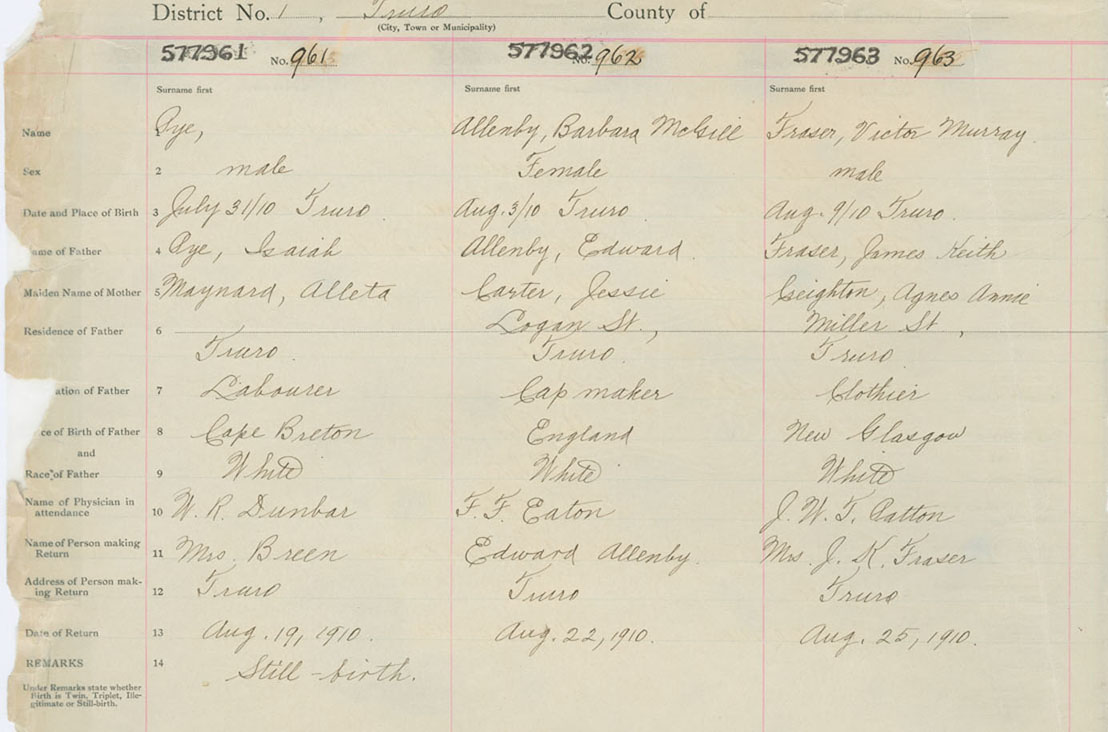 District No. 1, Truro County of
(City, Town or Municipality)
577961 No. 961 577962 No. 962 577963 No. 963
Surname first Surname first Surname first
Name 1 Pye, Allenby, Barbara McGill Fraser, Victor Murray
Sex 2 male Female male
Date and Place of Birth 3 July 31/10 Truro. Aug. 3/10 Truro. Aug. 9/10 Truro.
ame of Father 4 Pye, Isaiah Allenby, Edward. Fraser, James Keith
Maiden Name of Mother 5 Maynard, Alleta Carter, Jessie Ceighton, Agnes Annie
Logan St., Miller St.,
Residence of Father 6
Truro. Truro. Truro
ation of Father 7 Labourer Cap maker Clothier
ce of Birth of Father 8 Cape Breton England New Glasgow
and
Race of Father 9 White White White
Name of Physician in
attendance 10 W. R. Dunbar F. F. Eaton J. W. T. Patton
Name of Person making
Return 11 Mrs. Breen Edward Allenby. Mrs. J. K. Fraser
Address of Person mak-
ing Return 12 Truro Truro Truro
Date of Return 13 Aug. 19, 1910. Aug. 22, 1910. Aug. 25, 1910.
REMARKS 14 Still-birth.
Under Remarks state whether
Birth is Twin, Triplet, Ille-
gitimate or Still-birth.